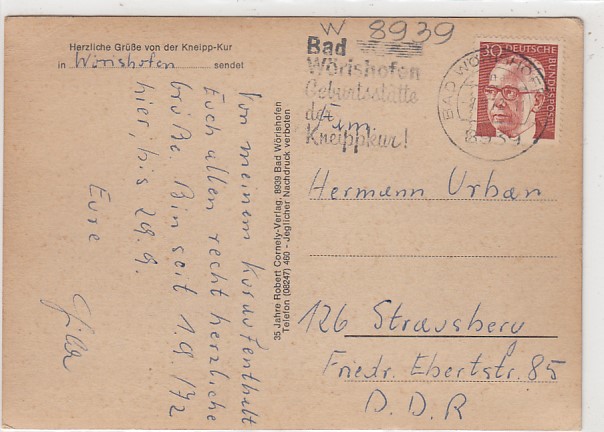 W 8939
Herzliche Grüße von der Kneipp-Kur
in Wörishofen sendet
Von meinem Kuraufenthalt
Euch allen recht herzliche
Grüße. Bin seit 1.9/72
hier, bis 29.9.
Eure
35 Jahre Robert Cornely-Verlag, 8939 Bad Wörishofen
Telefon (08247) 460 - Jeglicher Nachdruck verboten
Bad
Wörishofen
Geburtsstätte
der
Kneippkur!
BAD WÖRISHOFEN
8939
30 DEUTSCHE BUNDESPOST
Fam.
Hermann Urban
126 Strausberg
Friedr. Ebertstr. 85
D. D. R